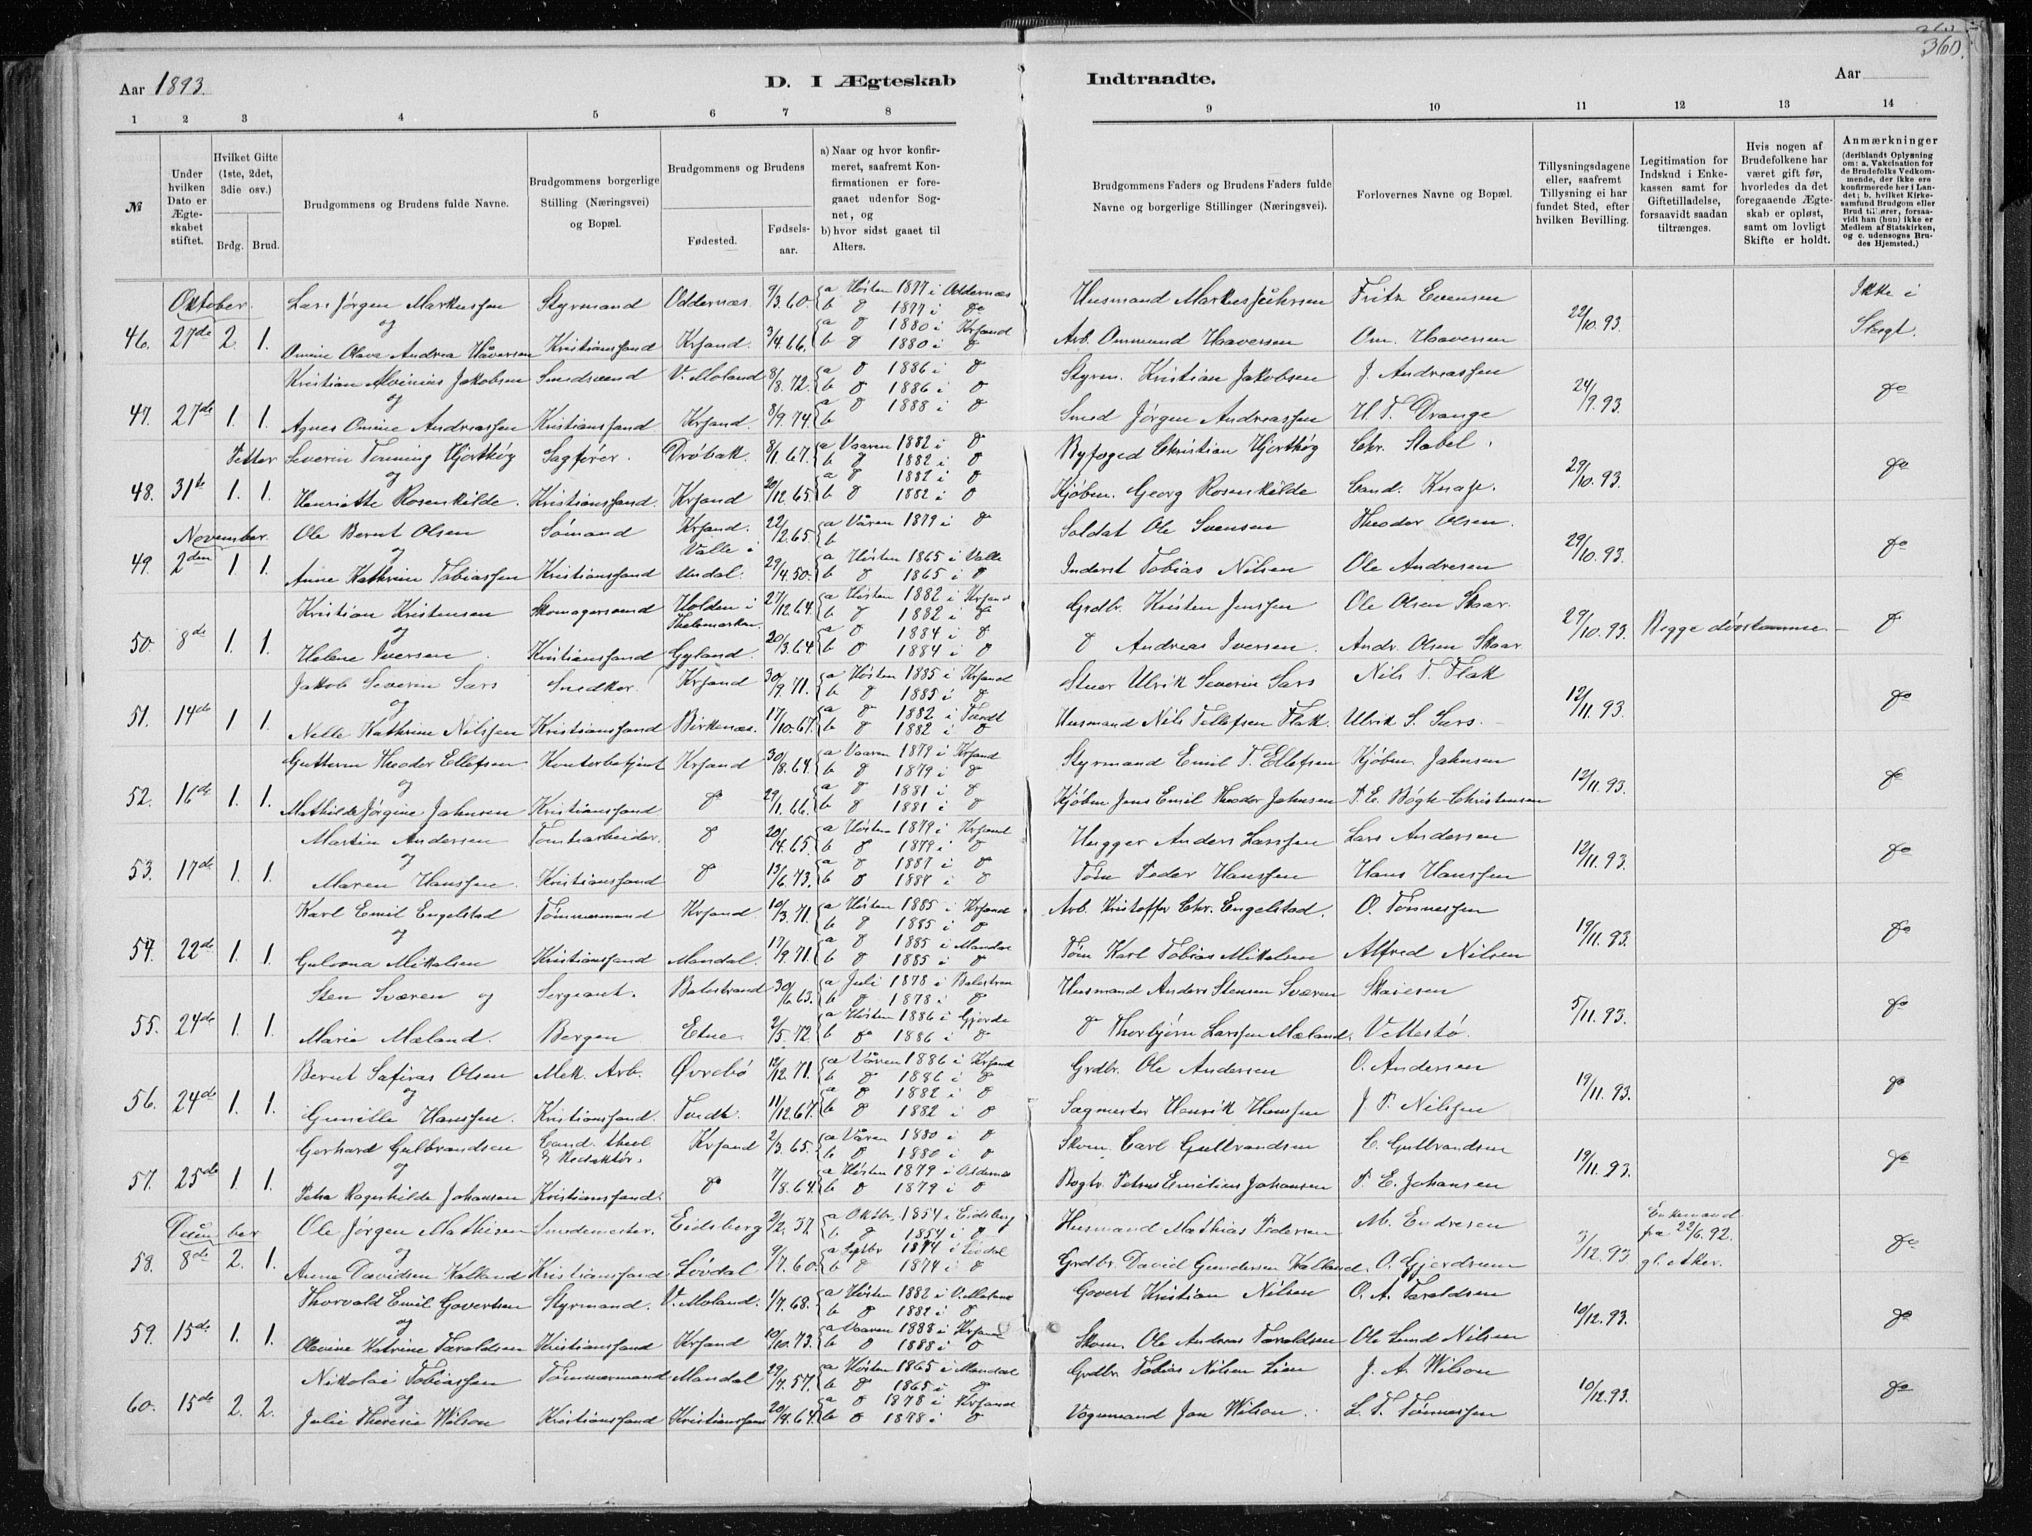 360.
Aar 1893.
D. I Ægteskab Indtraadte.
Aar
1 2 3 4 5 6 7 8 9 10 11 12 13 14
№
Under hvilken Dato er Ægteskabet stiftet.
Hvilket Gifte (1ste, 2det, 3die osv.)
Brdg. Brud.
Brudgommens og Brudens fulde Navne.
Brudgommens borgerlige Stilling (Næringsvei) og Bopæl.
Brudgommens og Brudens
Fødested. Fødselsaar.
a) Naar og hvor konfirmeret, saafremt Konfirmationen er foregaaet udenfor Sognet, og
b) hvor sidst gaaet til Alters.
Brudgommens Faders og Brudens Faders fulde Navne og borgerlige Stillinger (Næringsvei).
Forlovernes Navne og Bopæl.
Tillysningsdagene eller, saafremt Tillysning ei har fundet Sted, efter hvilken Bevilling.
Legitimation for Indskud i Enkekassen samt for Giftetilladelse, forsaavidt saadan tiltrænges.
Hvis nogen af Brudefolkene har været gift før, hvorledes da det foregaaende Ægteskab er opløst, samt om lovligt Skifte er holdt.
Anmærkninger
(deriblandt Oplysning om: a. Vakcination for de Brudefolks Vedkommende, der ikke ere konfirmerede her i Landet; b. hvilket Kirkesamfund Brudgom eller Brud tilhører, forsaavidt han (hun) ikke er Medlem af Statskirken, og c. udensogns Brudes Hjemsted.)
Oktober. Lars Jørgen Markussen Styrmand Oddernæs 9/3.60. a Høsten 1877 i Oddernæs Husmand Markus Fritz Evensen Ikke i
og b 1877 i do
46. 27de 2. 1. Omine Olava Andrea Håversen Kristianssand Krsand. 3/4.66. a 1880 i Krsand b 1880 i do Arb. Ommund Haaversen Om. Haaversen 22/10.93. Slægt.
Kristian Alvinius Jakobsen Smedsvend V. Moland 8/8.72. a do 1886 i do b do 1886 i do Styrm. Kristian Jakobsen J. Andreassen
og
47. 27de 1. 1. Agnes Omine Andreassen Kristianssand. Krsand. 8/9.74. a do 1888 i do b Smed Jørgen Andreassen H. T. Drange 24/9.93. do
Petter Severin Tonning Hjorthøy Sagfører. Drøbak. 8/1.67. a Vaaren 1882 i do b do 1882 i do Byfoged Christian Hjorthøy Chr. Stabel.
og
48. 31te 1. 1. Henriette Rosenkilde. Kristianssand. Krsand 20/12.65. a do 1882 i do b do 1882 i do Kjøbm. Georg Rosenkilde Cand. Knap. 29/10.93. do
November. Ole Bernt Olsen Sømand Krsand. 22/2.65. a Våren 1879 i do b Soldat Ole Svensen Theodor Olsen.
og
49. 2den 1. 1. Anne Kathrine Tobiassen Kristianssand Valle i Undal. 29/4.50. a Høsten 1865 i Valle b do 1865 i do Inderst Tobias Nilsen Ole Andresen 29/10.93. do
Kristian Kristensen Skomagersvend Holden i Thelemarken. 27/12.64. a Høsten 1882 i Krsand b do 1882 i do Grdbr. Kristen Jenssen Ole Olsen Skaar
og
50. 8de 1. 1. Helene Iversen. Kristianssand Gyland. 20/3.64. a do 1884 i do b do 1884 i do do Andreas Iversen. Andr. Olsen Skaar 29/10.93. Begge døvstumme do
Jakob Severin Sars Snedker. Krsand 30/9.71. a Høsten 1885 i Krsand b do 1885 i do Stuer Ulrik Severin Sars Nils T. Flak
og
51. 14de 1. 1. Nelle Kathrine Nilssen Kristianssand Birkenæs. 17/10.67. a do 1882 i Tvedt b do 1882 i do Husmand Nils Tellefsen Flak. Ulrik S. Sars. 12/11.93. do
Guttorm Theodor Ellefsen Kontorbetjent Krsand 30/8.64. a Vaaren 1879 i Krsand b do 1879 i do Styrmand Emil T. Ellefsen Kjøbm. Jahnsen
og
52. 16de 1. 1. Mathilde Jørgine Jahnsen Kristianssand do 29/1.66. a do 1881 i do b do 1881 i do Kjøbm Jens Emil Theodor Jahnsen P. E. Bøgh-Christensen 12/11.93. do
Martin Andersen Tomtearbeider. do 20/4.65. a Høsten 1879 i Krsand b do 1879 i do Hugger Anders Larssen Lars Andersen
og
53. 17de 1. 1. Maren Hanssen. Kristianssand do 13/6.73. a do 1887 i do b do 1887 i do Tøm Peder Hanssen Hans Hanssen 12/11.93. do
Karl Emil Engelstad Tømmermand Krsand. 10/3.71. a Høsten 1885 i Krsand b do 1885 i do Arb. Kristoffer Chr. Engelstad. O. Tønnessen
og
54. 22de 1. 1. Gulovna Mikalsen Kristianssand Mandal. 17/9.71. a do 1885 i Mandal b do 1885 i do Tøm Karl Tobias Mikalsen Alfred Nilsen 19/11.93. do
Sten Sværen og Sergeant. Balestrand 30/6.63. a Juli 1878 i Balestran b do 1878 i do Husmand Anders Stensen Sværen
55. 24de 1. 1. Marie Mæland. Bergen Etne. 2/5.72. a Høsten 1886 i b do 1886 i do do Thorbjørn Larssen Mæland. Vettestø. 5/11.93. do
Bernt Safiras Olsen Mek. Arb. Øvrebø 12/12.71. a Våren 1886 i Krsand b do 1886 i do Grdbr. Ole Andersen O. Andersen
og
56. 24de 1. 1. Gunille Hanssen. Kristianssand. Tvedt. 11/12.67. a do 1882 i do b do 1882 i do Sagmester Henrik Hanssen J. P. Nilssen 19/11.93. do
Gerhard Gulbrandsen Cand. theol & Redaktør. Krsand 2/3.65. a Våren 1880 i do b do 1880 i do Skom. Carl Gulbrandsen C. Gulbrandsen
og
57. 25de 1. 1. Petra Ragnhilde Johansen Kristianssand. do 7/8.64. a Høsten 1879 i Oddernæs b do 1879 i do Bogtr. Petrus Emilius Johansen P. E. Johansen 19/11.93. do
December Ole Jørgen Mathisen Smedemester. Eidsberg 2/2.37. a Oktbr. 1854 i Eidsberg b do 1854 i do Husmand Mathias Pedersen M. Endresen Enkemand
og fra 22/6.92.
58. 8de 2. 1. Anne Davidsen Kalland Kristianssand. Løvdal 9/7.60. a Septbr 1874 i Løvdal b do 1874 i do Grdbr. David Gundersen Kalland. O. Gjerdrum 3/12.93. gl. Aker. do
Thorvald Emil Govertsen Styrmand. V. Moland. 1/7.68. a Høsten 1882 i V. Moland b do 1882 i do Govert Kristian Nilsen O. A. Taraldsen
og
59. 15de 1. 1. Olevine Katrine Taraldsen Kristianssand Krsand 10/10.73. a Vaaren 1888 i Krsand b do 1888 i do Skom. Ole Andreas Taraldsen Ole Lund Nilsen 10/12.93. do
Nikolai Tobiassen Tømmermand Mandal 29/7.57. a Høsten 1865 i Mandal b do 1865 i do Grdbr. Tobias Nilsen Lien J. A. Wilson
og
60. 15de 2. 2. Julie Theresie Wilson Kristianssand Kristianssand 20/4.64. a do 1878 i Krsand b do 1878 i do Vognmand Jan Wilson. L. T. Tønnessen 10/12.93. do